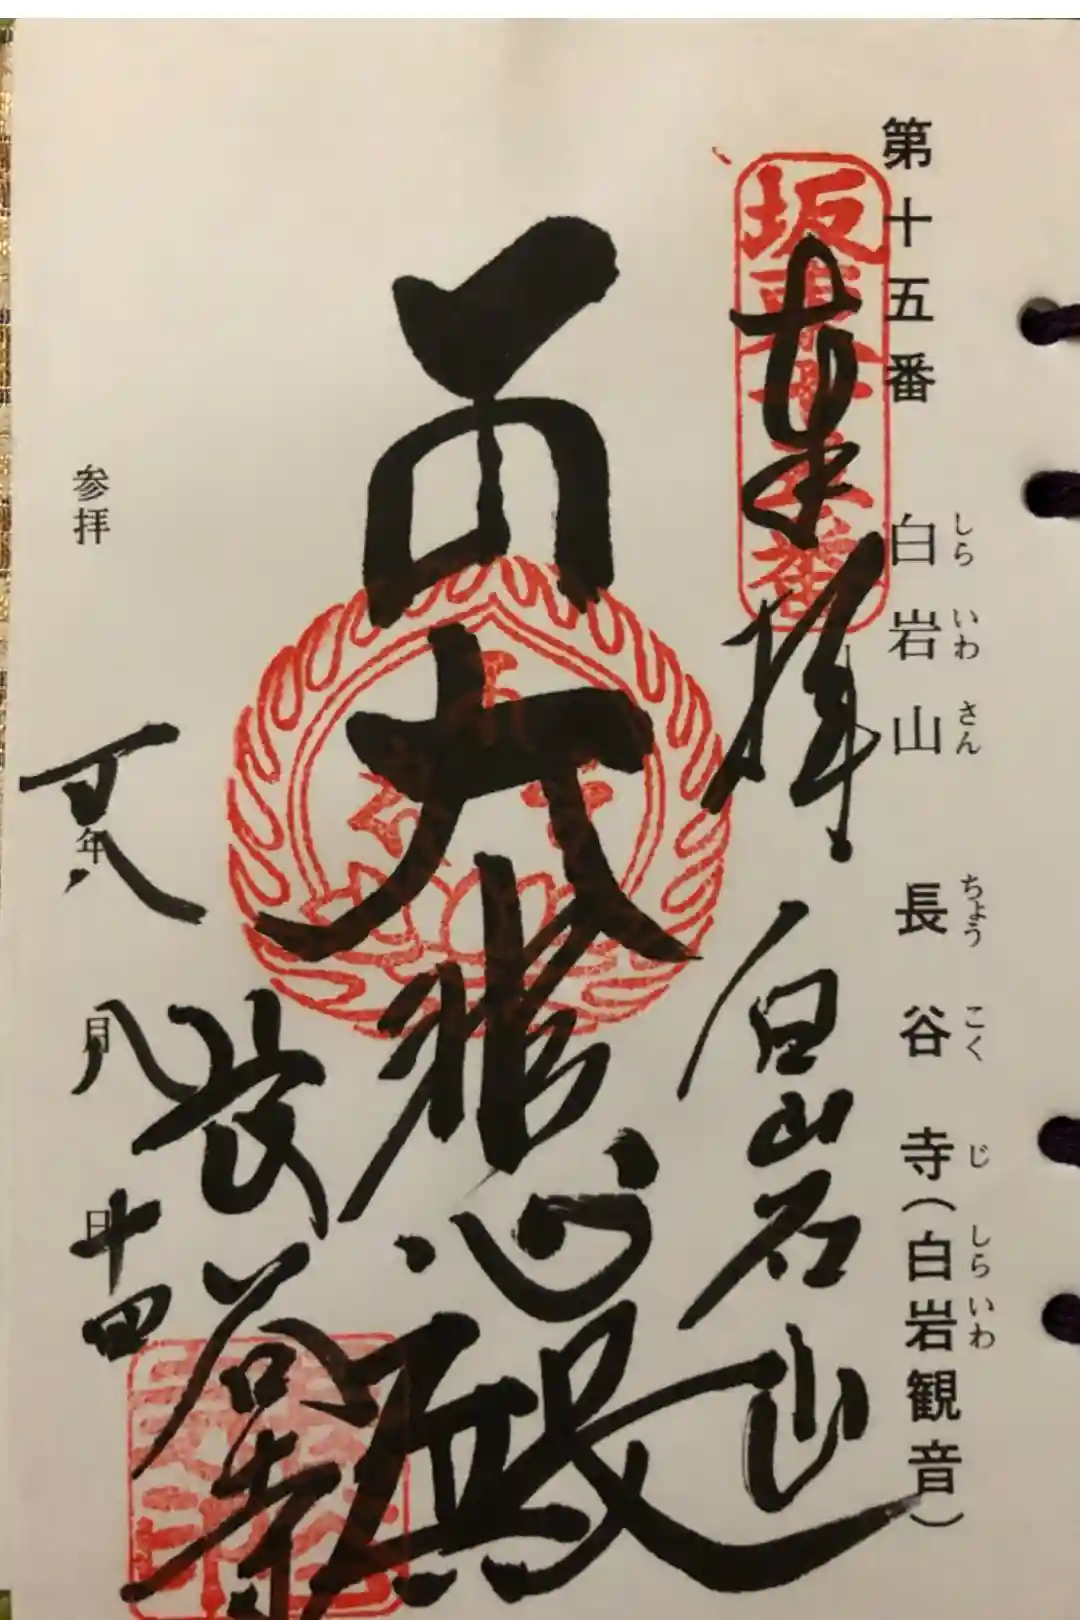 第十五番 白岩山 長谷寺(白岩観音)
しらいわさん ちょうこくじ しらいわ
坂東十五番
奉拝 白岩山
大悲殿
長谷寺
参拝 年 八月 十四日